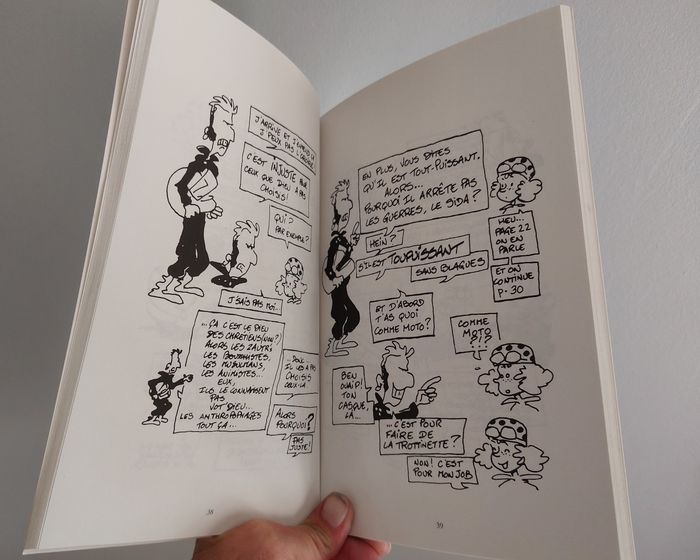 J'ARRIVE ET J'ENTENDS LA
J' PEUX PAS L'
C'EST INJUSTE POUR
CEUX QUE DIEU A PAS
CHOISIS!
QUI?
PAR EXEMPLE?
J'SAIS PAS MOI..
...ÇA C'EST LE DIEU
DES CHRÉTIENS (NON?)
ALORS LES ZAUTR:
LES BOUDDHISTES,
LES MUSULMANS,
LES ANIMISTES...
EUX,
ILS LE CONNAISSENT
PAS
VOT' DIEU..
LES ANTHROPOPHAGES
TOUT ÇA...
...DONC
IL LES A PAS
CHOISIS
CEUX-LÀ
ALORS
POURQUOI?
PAS
JUSTE!
38
EN PLUS, VOUS DITES
QU'IL EST TOUT-PUISSANT.
ALORS...
POURQUOI IL ARRÊTE PAS
LES GUERRES, LE SIDA?
HEIN?
S'IL EST TOUPUISSANT
SANS BLAGUES
HEU...
PAGE 22
ON EN
PARLE
ET ON
CONTINUE
P. 30
ET D'ABORD
T'AS QUOI
COMME MOTO?
COMME
MOTO
?!?
BEN
OUAIP!
TON
CASQUE,
LÀ...
...C'EST POUR
FAIRE DE
LA TROTTINETTE?
NON! C'EST
POUR MON JOB
39